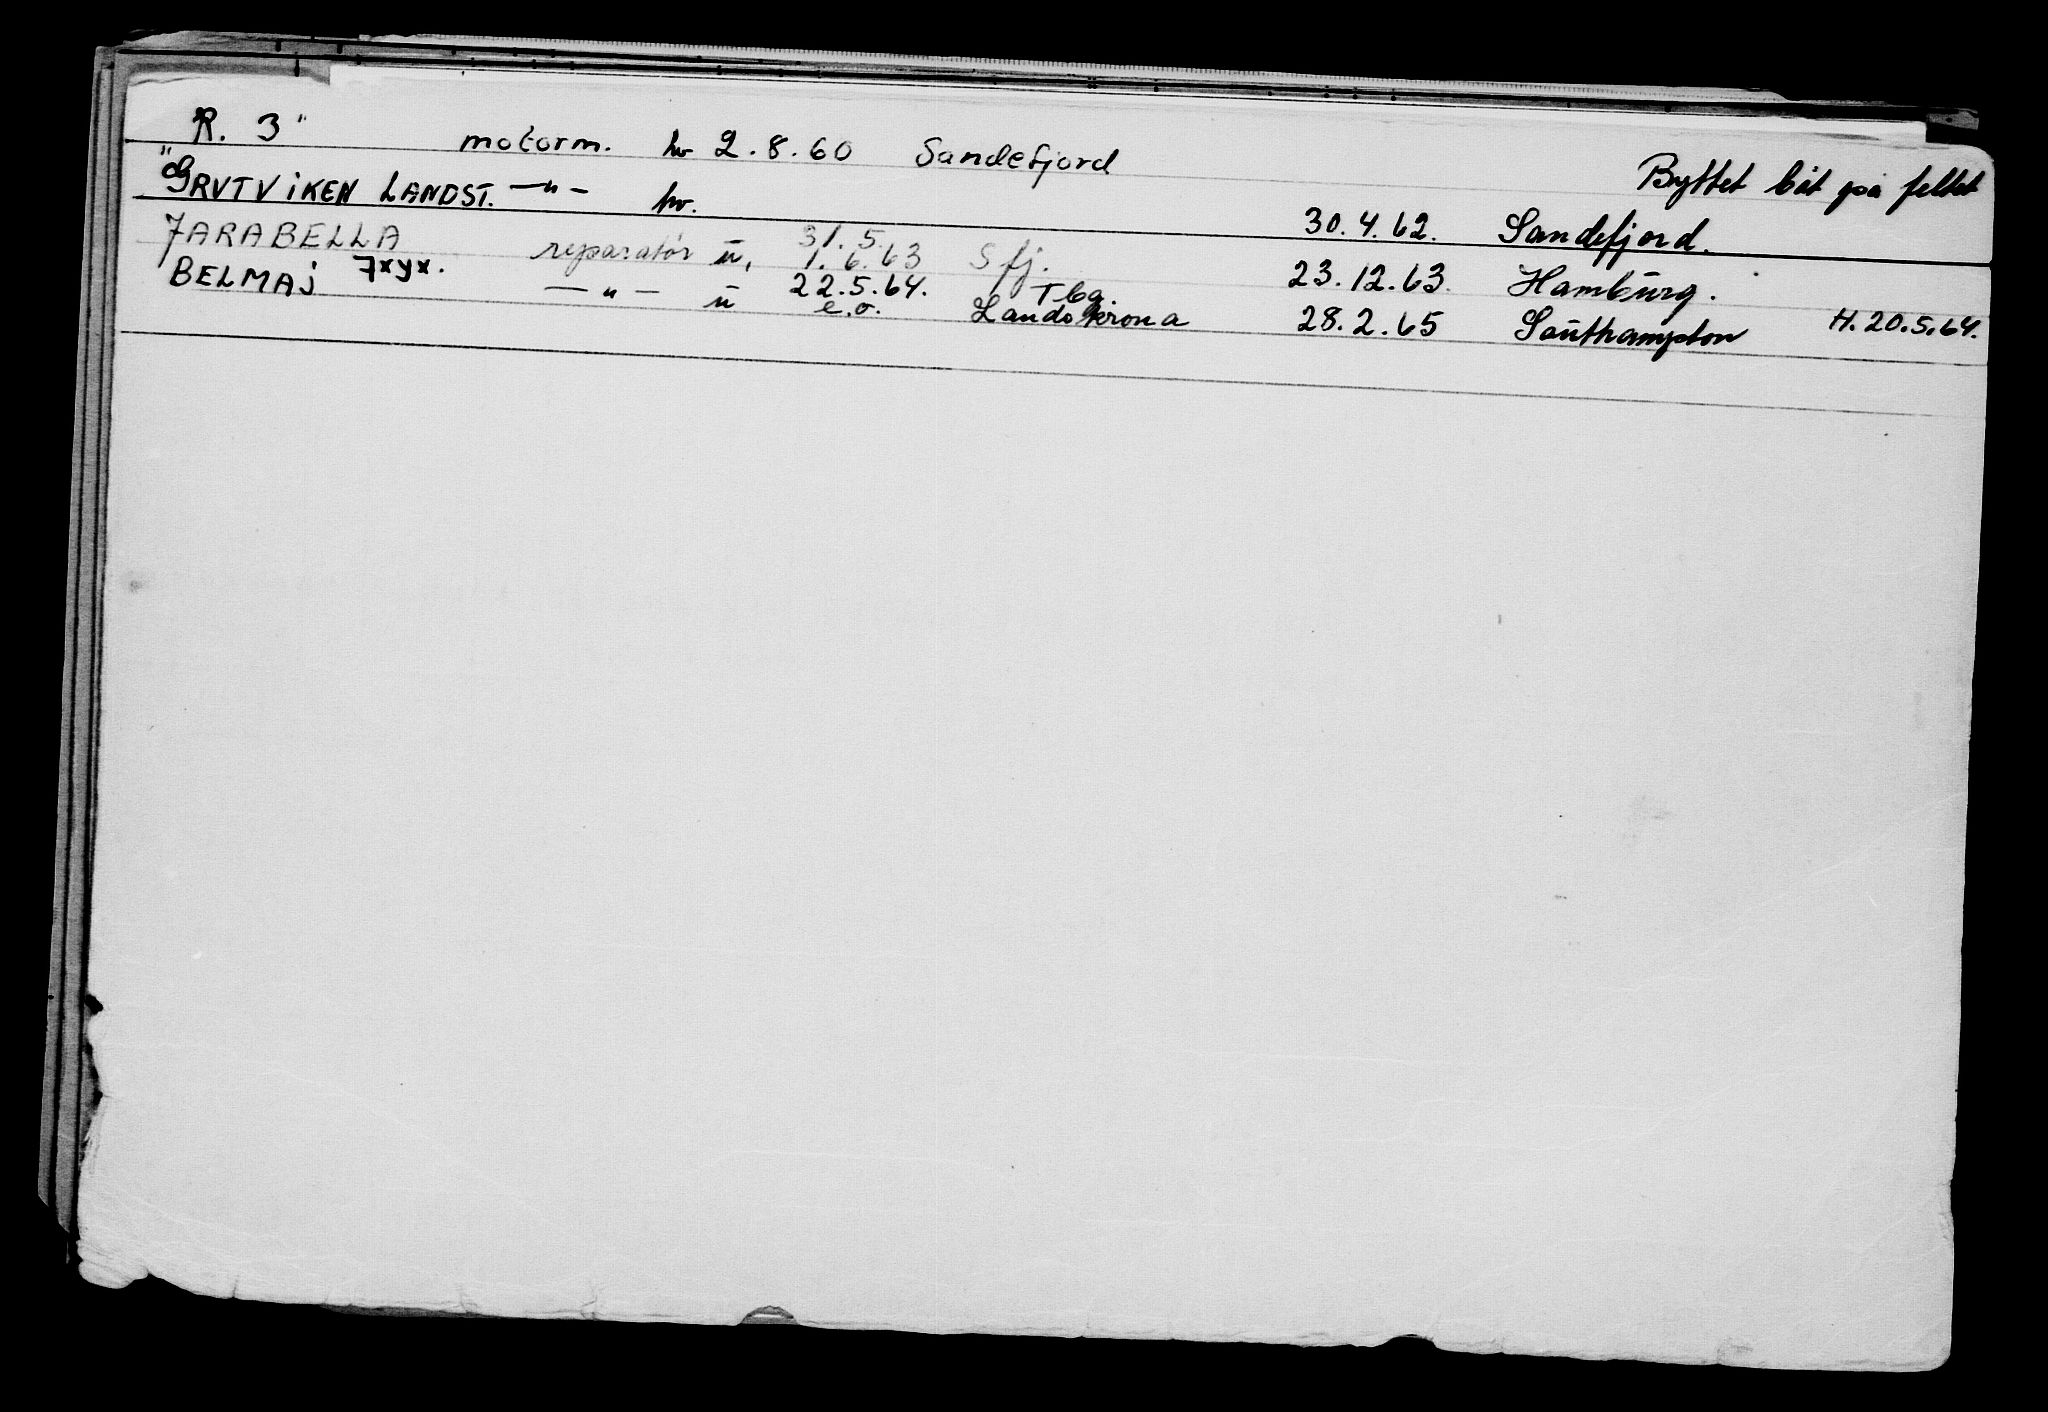 R. 3" motorm. hv 2.8.60 Sandefjord Byttet båt på feltet
"GRVTVIKEN LANDST. —"— hv. 30.4.62. Sandefjord.
7ARABELLA reparatør ū, 31.5. 1.6.63 Sfj. 23.12.63. Hamburg.
BELMAJ 7xyx. —"— ū 22.5.64. e.o. Tbg. Landskrona 28.2.65 Southampton H.20.5.64.